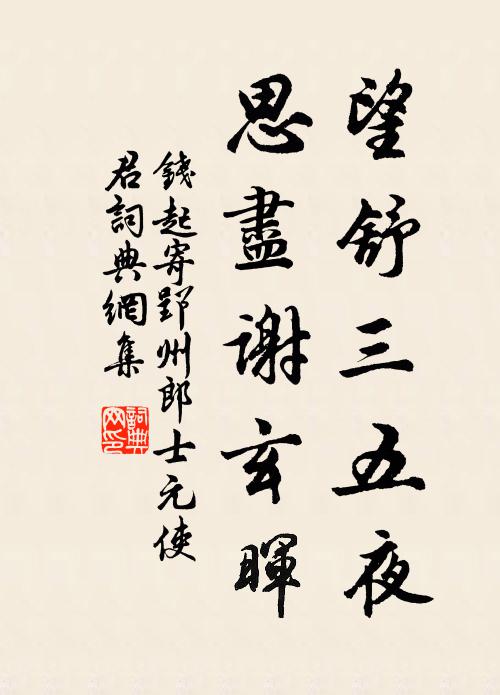 望舒三五夜
思盡謝玄暉
錢起寄郢州郎士元使
君詞典網集
詞典網印